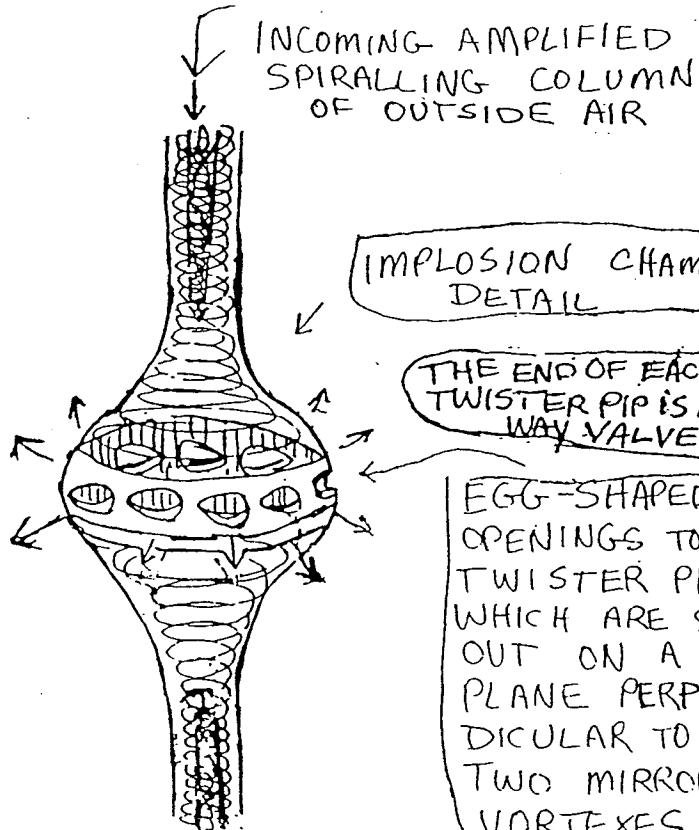 INCOMING AMPLIFIED
SPIRALLING COLUMN
OF OUTSIDE AIR
IMPLOSION CHAM
DETAIL
THE END OF EAC
TWISTER PIP iS
WAY VALVE
EGG-SHAPED
OPENINGS TO
TWISTER P
WHICH ARE S
OUT ON A
PLANE PERP
DICULAR TO
TWO MIRRO
VORTEXES